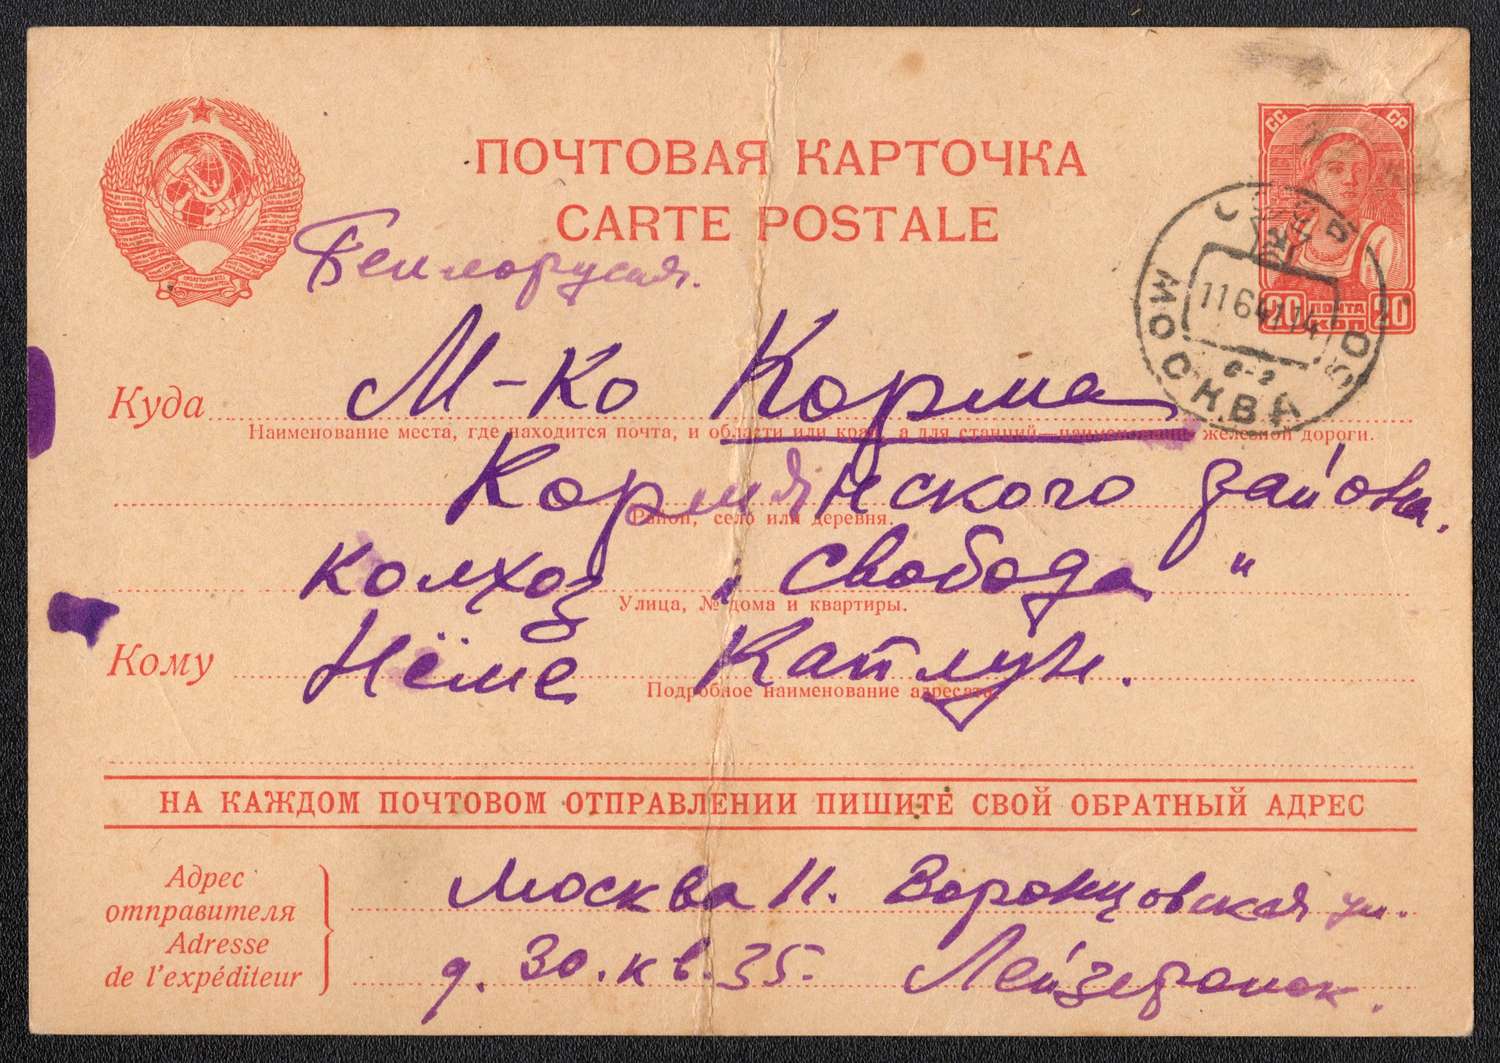 ПОЧТОВАЯ КАРТОЧКА
CARTE POSTALE
СС СР
20 ПОЧТА 20
КОП
МОСКВА
11641114
Куда М-ко Корма
Наименование места, где находится почта, и области или края, а для станций наименование железной дороги.
Кормянского района.
Район, село или деревня.
колхоз „Свобода"
Улица, № дома и квартиры.
Кому Нёме Каплун.
Подробное наименование адресата.
НА КАЖДОМ ПОЧТОВОМ ОТПРАВЛЕНИИ ПИШИТЕ СВОЙ ОБРАТНЫЙ АДРЕС
Адрес отправителя
Adresse de l'expéditeur
Москва 11. Воронцовская ул.
д. 30. кв. 35.